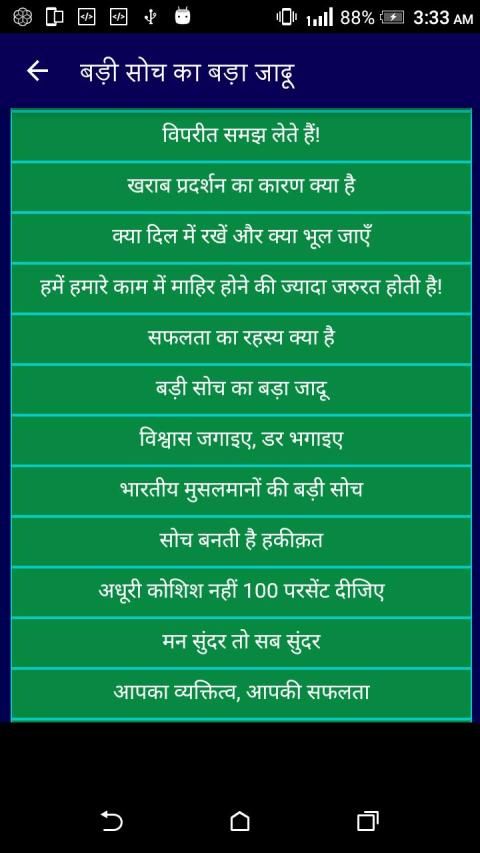 88% 3:33 AM
बड़ी सोच का बड़ा जादू
विपरीत समझ लेते हैं!
खराब प्रदर्शन का कारण क्या है
क्या दिल में रखें और क्या भूल जाएँ
हमें हमारे काम में माहिर होने की ज्यादा जरुरत होती है!
सफलता का रहस्य क्या है
बड़ी सोच का बड़ा जादू
विश्वास जगाइए, डर भगाइए
भारतीय मुसलमानों की बड़ी सोच
सोच बनती है हकीक़त
अधूरी कोशिश नहीं 100 परसेंट दीजिए
मन सुंदर तो सब सुंदर
आपका व्यक्तित्व, आपकी सफलता